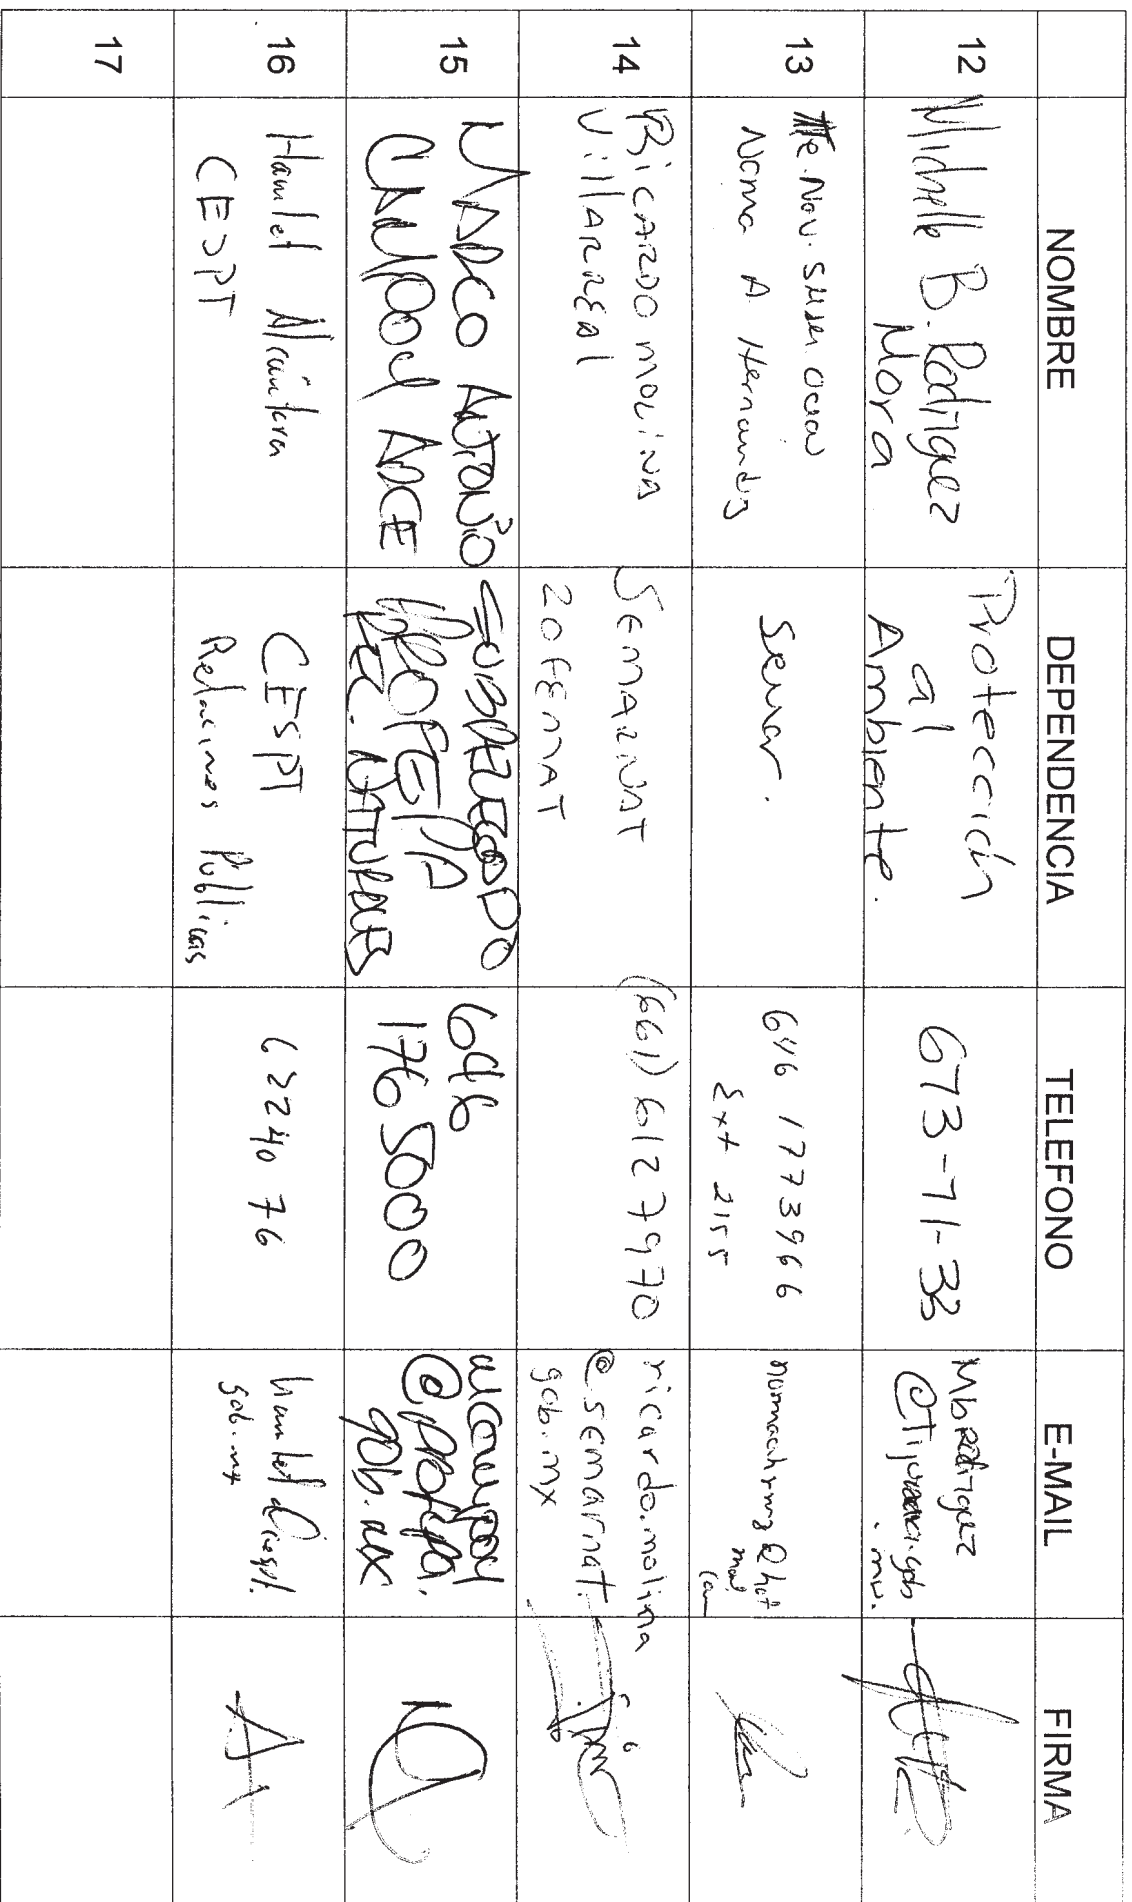 NOMBRE DEPENDENCIA TELEFONO E-MAIL FIRMA
12 Michelle B. Rodriguez Mora
Protección
al
Ambiente.
673-71-33
Mbrodriguez
13
Norma A Hernandez
Semar.
646 1773966
Ext 2155
14 Ricardo molina
VillARREAl
SEMARNAT
ZOFEMAT
(661) 6127970
ricardo.molina
@semarnat.
gob.mx
15 MARCO ANTONIO
CAMPOY ARCE
SUBDELEGADO
PROFEPA
REC. NATURALES
646
176 5000
@profepa.
gob.mx
16 Hamlet Alcántara
CESPT
CESPT
Relaciones Públicas
gob.mx
17